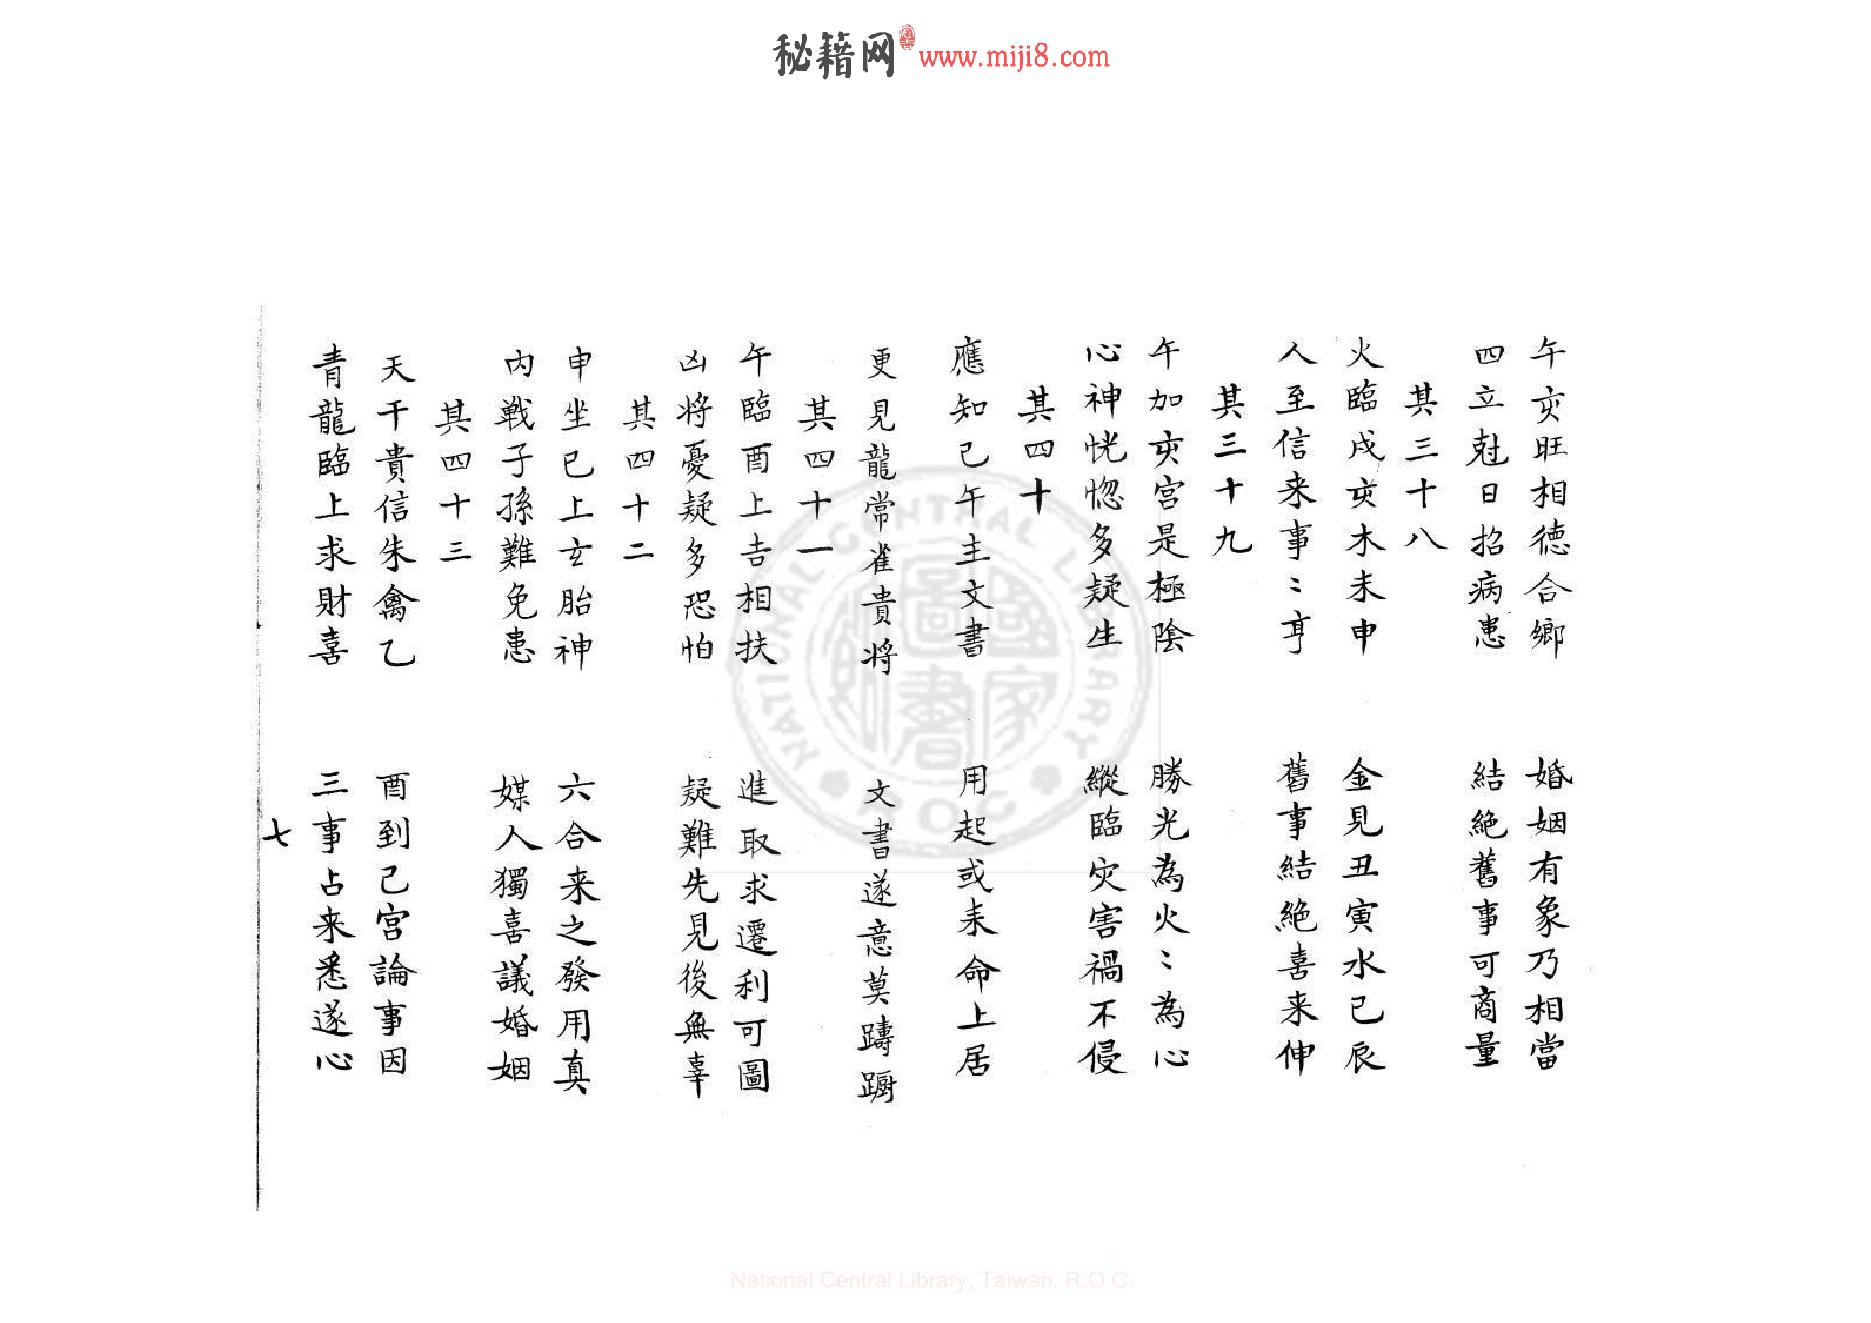 秘籍网 www.miji8.com
午亥旺相德合鄉 婚姻有象乃相當
四立尅日招病患 結絶舊事可商量
其三十八
火臨戌亥木未申 金見丑寅水巳辰
人至信来事〻亨 舊事結絶喜来伸
其三十九
午加亥宮是極陰 勝光為火〻為心
心神恍惚多疑生 縱臨灾害禍不侵
其四十
應知己午主文書 用起或未命上居
更見龍常雀貴將 文書遂意莫躊蹰
其四十一
午臨酉上吉相扶 進取求遷利可圖
凶將憂疑多恐怕 疑難先見後無辜
其四十二
申坐巳上玄胎神 六合来之發用真
內戦子孫難免患 媒人獨喜議婚姻
其四十三
天干貴信朱禽乙 酉到己宮論事因
青龍臨上求財喜 三事占来悉遂心
七
NATIONAL CENTRAL LIBRARY
R.O.C
國家圖書館
National Central Library, Taiwan, R.O.C.